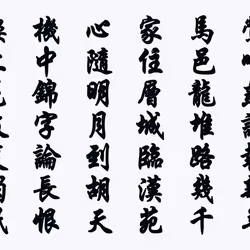 馬邑龍堆路幾千
家住層城臨漢苑
心隨明月到胡天
機中錦字論長恨